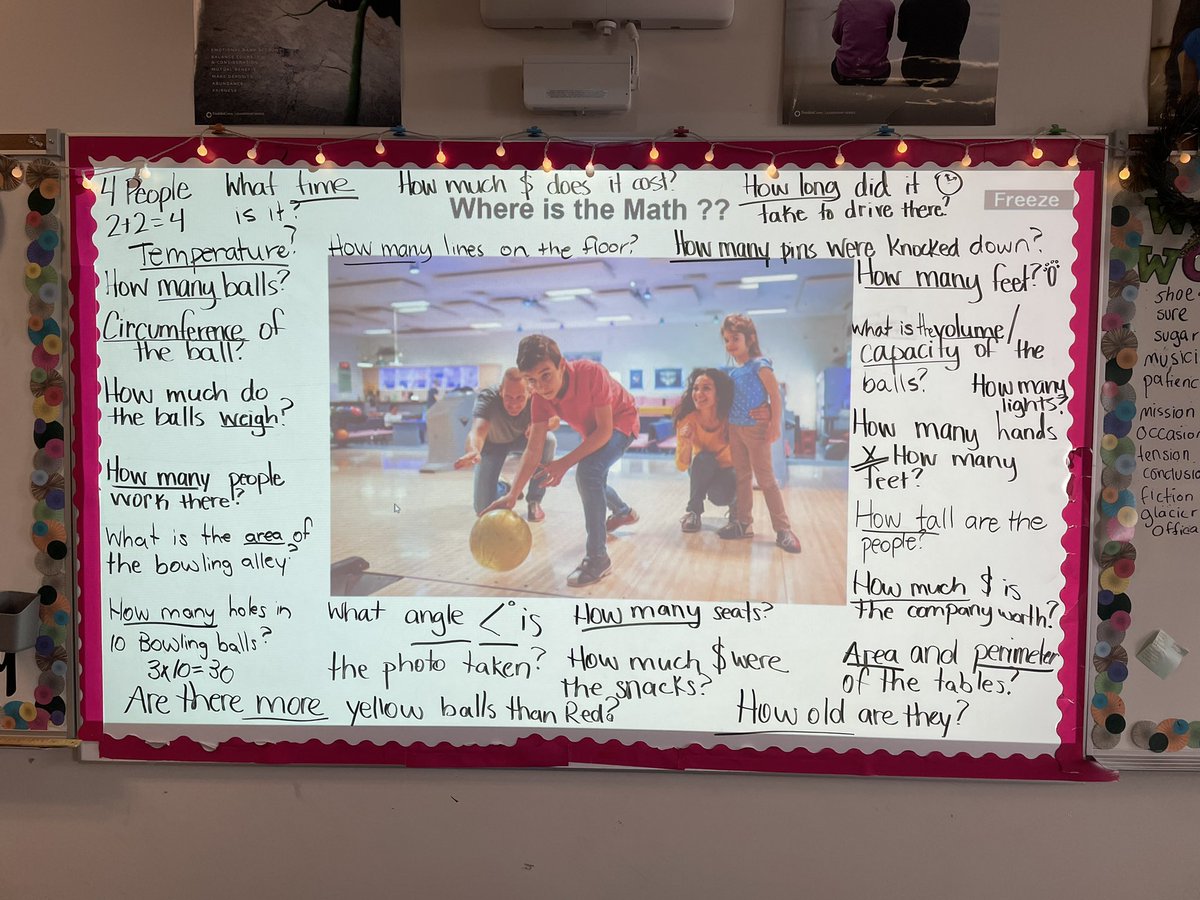 EMOTIONAL BANK ACCOUNT
BALANCE COURAGE
& CONSIDERATION
MUTUAL BENEFIT
MAKE DEPOSITS
ABUNDANCE
FAIRNESS
4 People
2+2=4
What time
is it?
How much $ does it cost?
How long did it
take to drive there?
Where is the Math ??
Freeze
Temperature?
How many lines on the floor?
How many pins were knocked down?
How many balls?
Circumference of
the ball?
How much do
the balls weigh?
How many people
work there?
What is the area of
the bowling alley?
How many holes in
10 Bowling balls?
3x10=30
How many feet?
What is the volume/
capacity of the
balls?
How many
lights?
How many hands
x How many
feet?
How tall are the
people?
How much $ is
the company worth?
Area and perimeter
of the tables?
What angle <° is
the photo taken?
How many seats?
How much $ were
the snacks?
Are there more yellow balls than Red?
How old are they?
W
WO
shoe
sure
sugar
musici
patienc
mission
occasion
tension
conclusio
fiction
glacier
officia